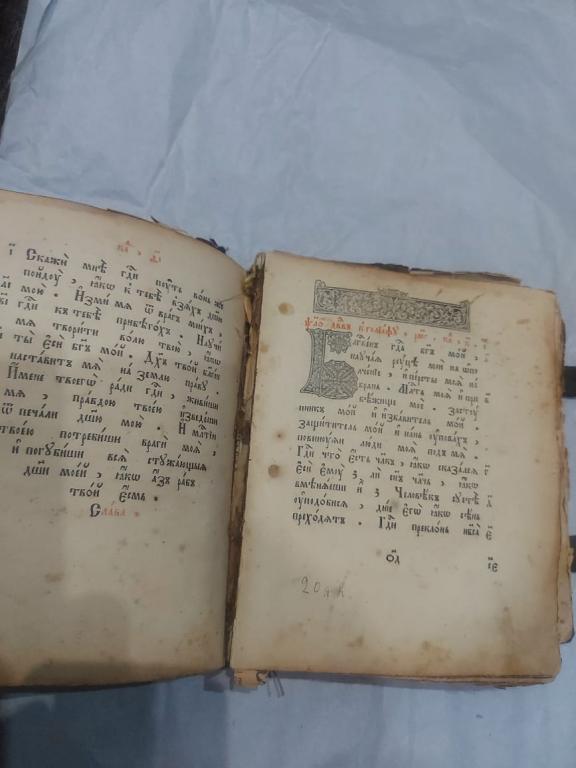 к҃а , ѱ҃
Скажи́ мнѣ̀ гдⷭ҇и пꙋ́ть во́нь же
пойдꙋ̀ , ꙗ҆́кѡ к тебѣ̀ взѧ́хъ дш҃ꙋ
мою̀ . И҆зми́ мѧ ѿ вра́гъ мои́хъ ,
гдⷭ҇и къ тебѣ̀ прибѣго́хъ . Наꙋчи́
мѧ твори́ти во́лю твою̀ , ꙗ҆́кѡ
ты̀ є҆сѝ бг҃ъ мо́й . Дх҃ъ тво́й бл҃гі́й
наста́витъ мѧ̀ на зе́млю пра́вꙋ .
И҆́мене твоегѡ̀ ра́ди гдⷭ҇и , живи́ши
мѧ , пра́вдою твое́ю и҆зведе́ши
ѿ печа́ли дш҃ꙋ мою̀ . И҆ млⷭ҇тїю
твое́ю потреби́ши врагѝ моѧ̀ ,
и҆ погꙋби́ши всѧ̀ стꙋжа́ющыѧ
дш҃и мое́й , ꙗ҆́кѡ а҆́зъ ра́бъ
тво́й є҆́смь .
Сла́ва .
ѱало́мъ дв҃дꙋ к голиа́фꙋ , рм҃г .
Благве́нъ гдⷭ҇ь бг҃ъ мо́й ,
наꙋча́ѧ рꙋ́цѣ моѝ на ѡ҆пол
че́нїе , и҆ пе́рсты моѧ̀ на
бра́нь . Млⷭ҇ть моѧ̀ и҆ при
бѣ́жище моѐ . Застꙋ́
пникъ мо́й и҆ и҆зба́витель мо́й .
Защи́титель мо́й и҆ на́нь ᲂу҆пова́хъ ,
повинꙋ́ѧи лю́ди моѧ̀ под̾ мѧ̀ .
Гдⷭ҇и что̀ є҆́сть чл҃къ , ꙗ҆́кѡ сказа́лсѧ
є҆сѝ є҆мꙋ̀ ; и҆лѝ сн҃ъ чл҃чь , ꙗ҆́кѡ
вмѣнѧ́еши и҆̀ ; Человѣ́къ сꙋетѣ̀
ᲂу҆подо́бисѧ , дні́е є҆гѡ̀ ꙗ҆́кѡ сѣ́нь
прехо́дѧтъ . Гдⷭ҇и преклонѝ нб҃са̀
ѻ҃д
20 я к